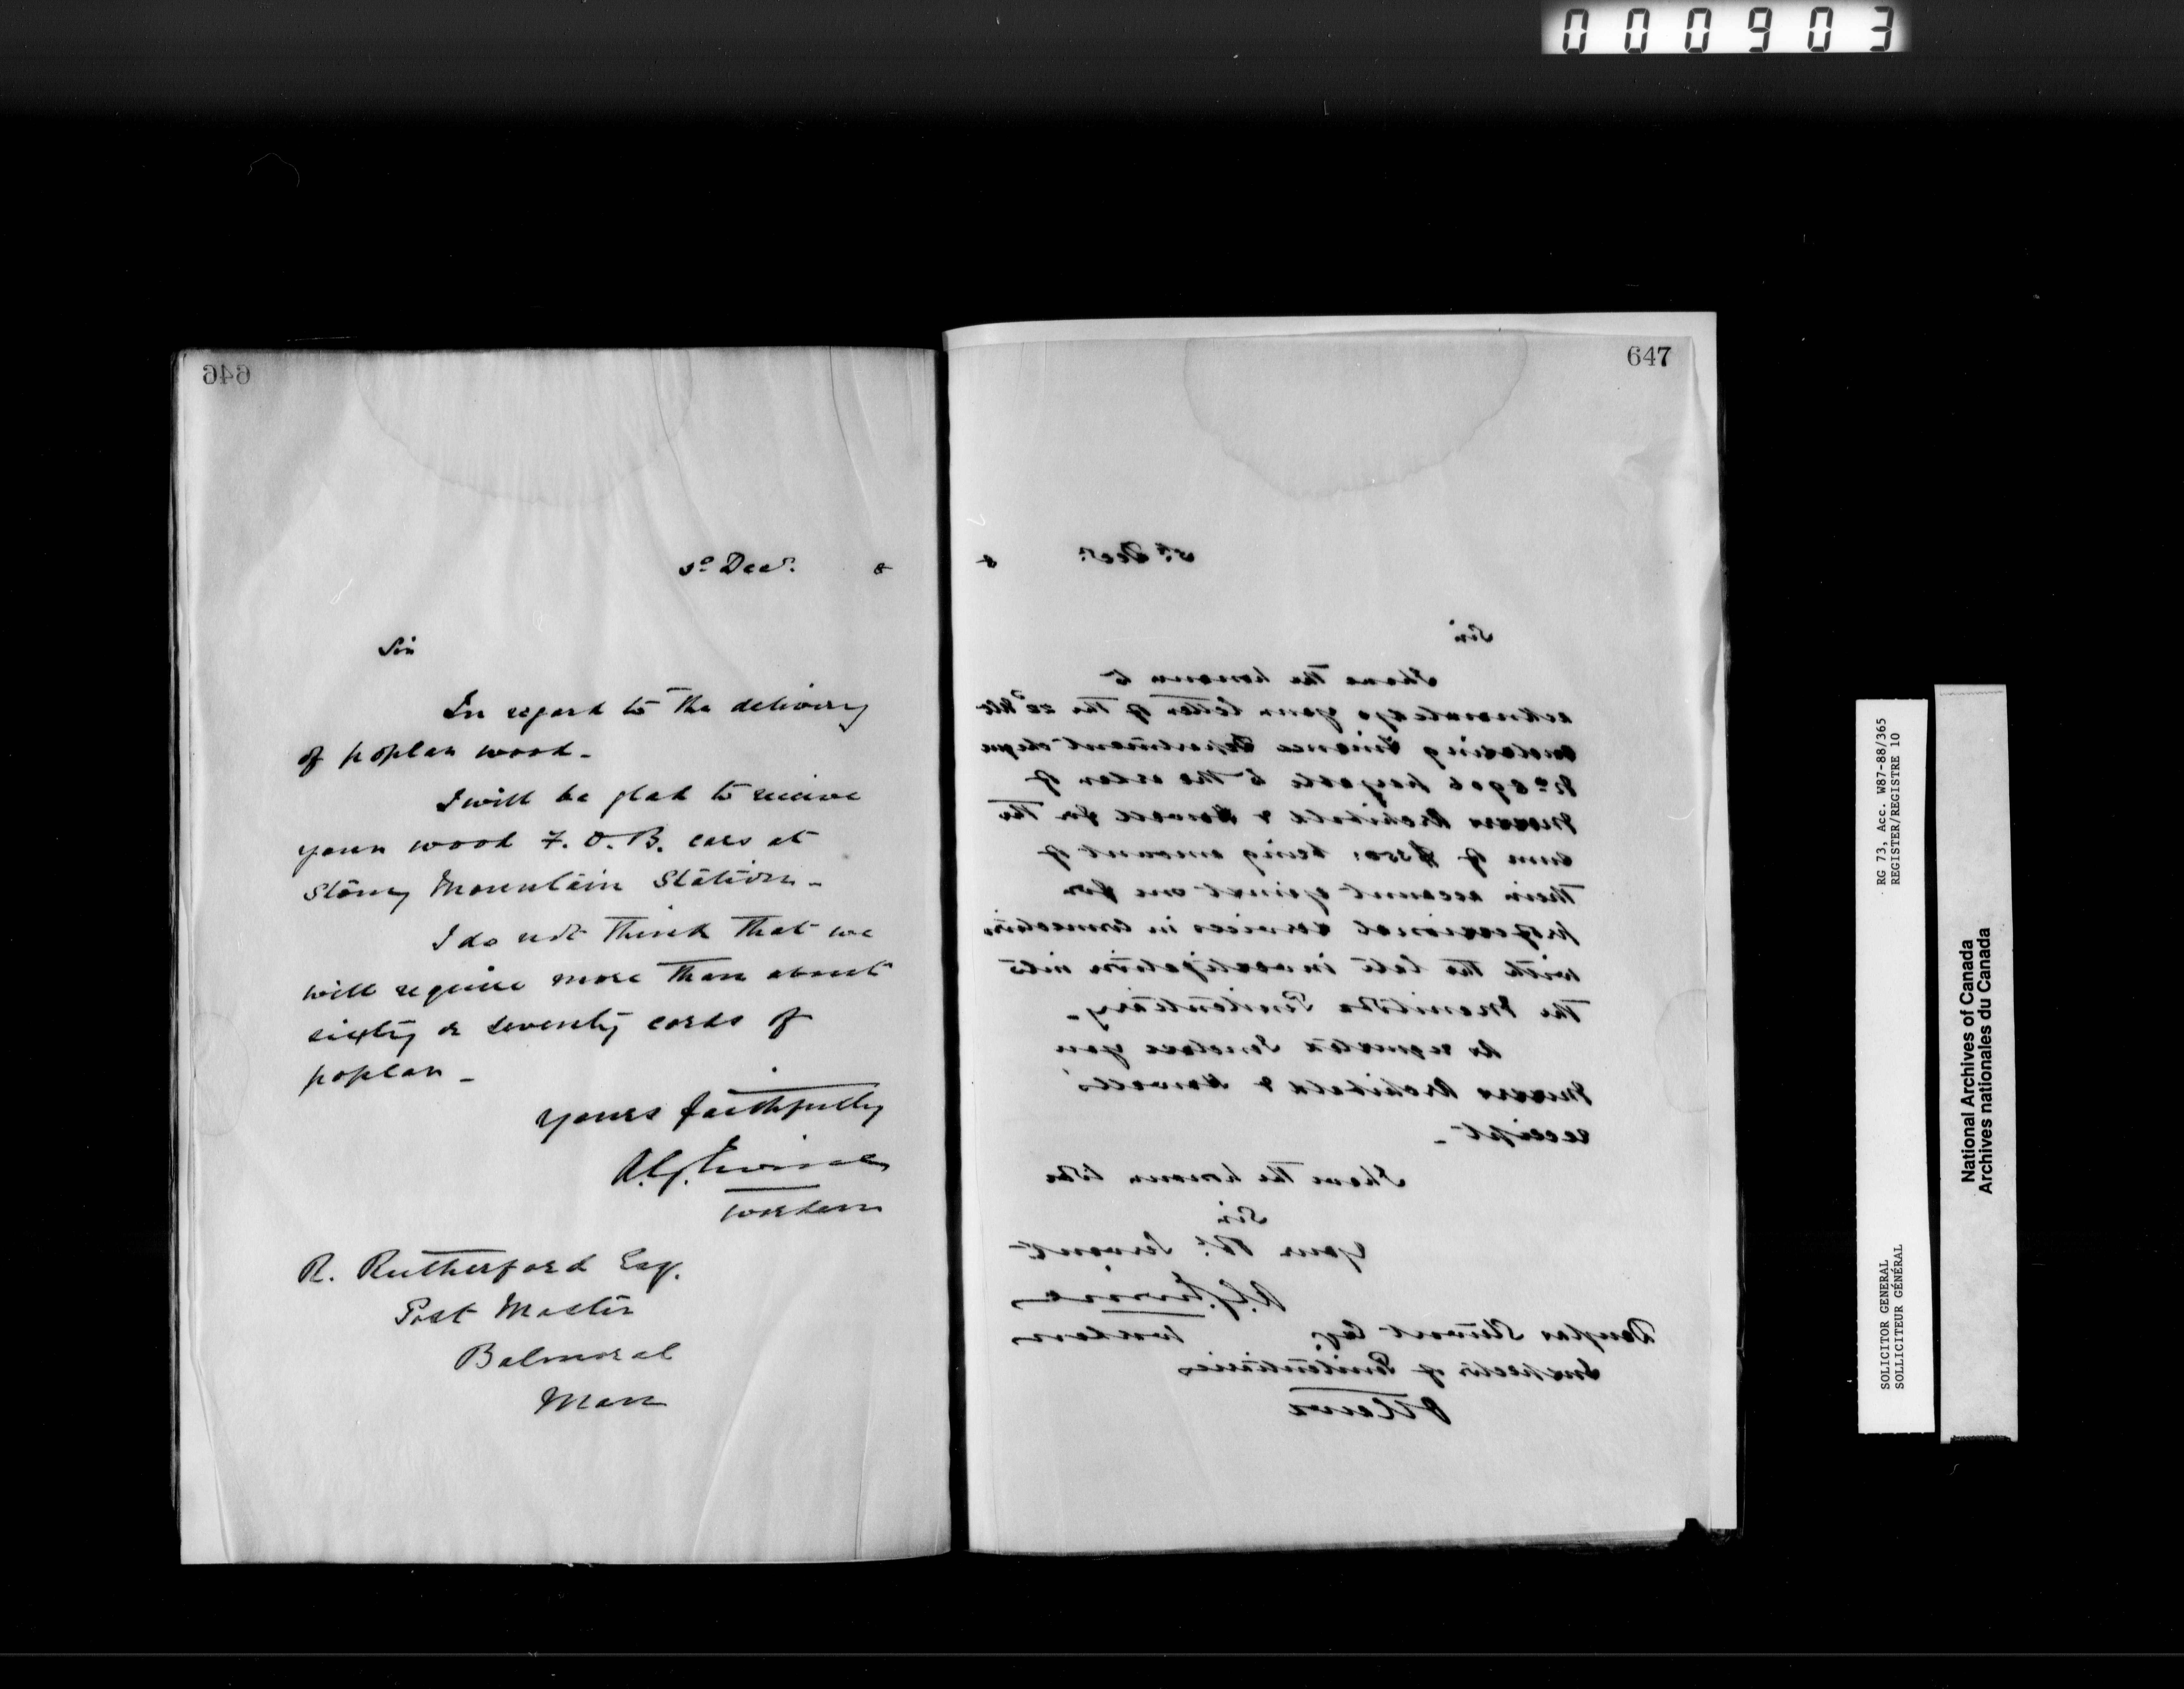 000903
646
3º Decr. 8
Sir
In regard to the delivery
of poplar wood -
I will be glad to receive
your wood F.O.B. cars at
Stony Mountain Station -
I do not think that we
will require more than about
sixty or seventy cords of
poplar -
Yours faithfully
A.G. Irvine
Warden
R. Rutherford Esq.
Post Master
Balmoral
Man
647
5th Decr. 8
Sir
I have the honour to
acknowledge your letter of the ulto
enclosing Finance Department cheque
No 8906 payable to the order of
Messrs Archibald & Howell for the
sum of being amount of
their account against me for
professional services in connection
with the late investigation into
the Manitoba Penitentiary -
As requested I enclose you
Messrs Archibald & Howell's
receipt -
I have the honour to be
Sir
Your Obt. Servant
A.G. Irvine
Douglas Stewart Esq. Warden
Inspector of Penitentiaries
Ottawa
RG 73, Acc. W87-88/365
REGISTER/REGISTRE 10
SOLICITOR GENERAL
SOLLICITEUR GÉNÉRAL
National Archives of Canada
Archives nationales du Canada